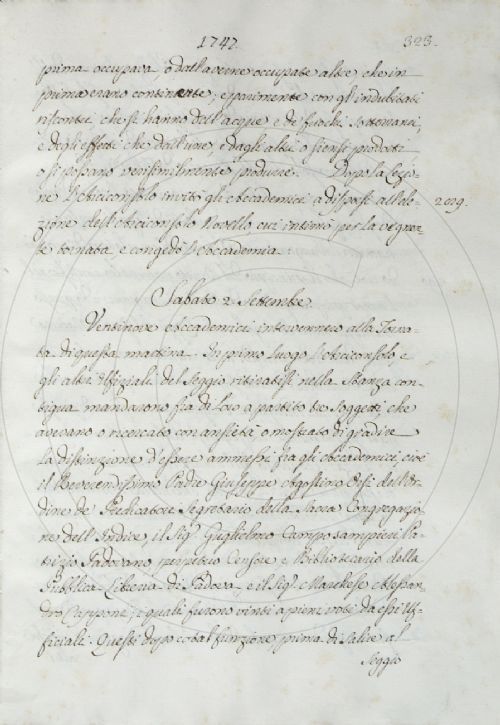 1747. 323.
prima occupava o dall'averne occupate altre che in
prima erano continente; e parimente con gl'indubitati
riscontri che si hanno dell'acque e de fuochi sotterranei,
e degli effetti che dall'une, e dagli altri o siensi prodotti
o si possano verisimilmente produrre. Dopo la Lezio-
ne l'Arciconsolo invitò gli Accademici a disporsi all'ele- 2029.
zione dell'Arciconsolo Novello cui intimò per la vegnen-
te tornata e congedò l'Accademia.
Sabato 2. Settembre.
Ventinove Accademici intervennero alla Torna-
ta di questa mattina. In primo luogo l'Arciconsolo, e
gli altri Ufiziali del Seggio ritiratisi nella Stanza con-
tigua mandarono fra di Loro a partito tre Soggetti, che
avevano o ricercato con ansietà o mostrato di gradire
la distinzione d'essere ammessi fra gli Accademici, cioè
il Reverendissimo Padre Giuseppe Agostino Orsi dell'Or-
dine de Predicatori Segretario della Sacra Congregazio-
ne dell'Indice, il Sigr. Guglielmo Camposampieri Pa-
trizio Padovano, perpetuo Censore e Bibliotecario della
Pubblica Libreria di Padova, e il Sigr. Marchese Alessan-
dro Capponi; i quali furono vinti a pieni voti da essi Uf-
ficiali. Questi dopo cotal funzione prima di salire al
Seggio